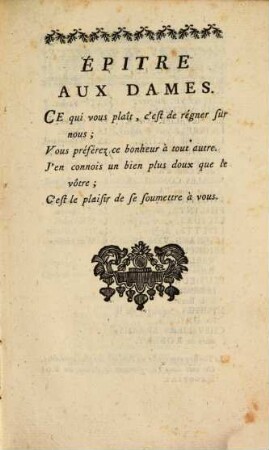 ÉPITRE
AUX DAMES.
CE qui vous plaît, c'est de régner sur
nous ;
Vous préférez ce bonheur à tout autre.
J'en connois un bien plus doux que le
vôtre ;
C'est le plaisir de se soumettre à vous.